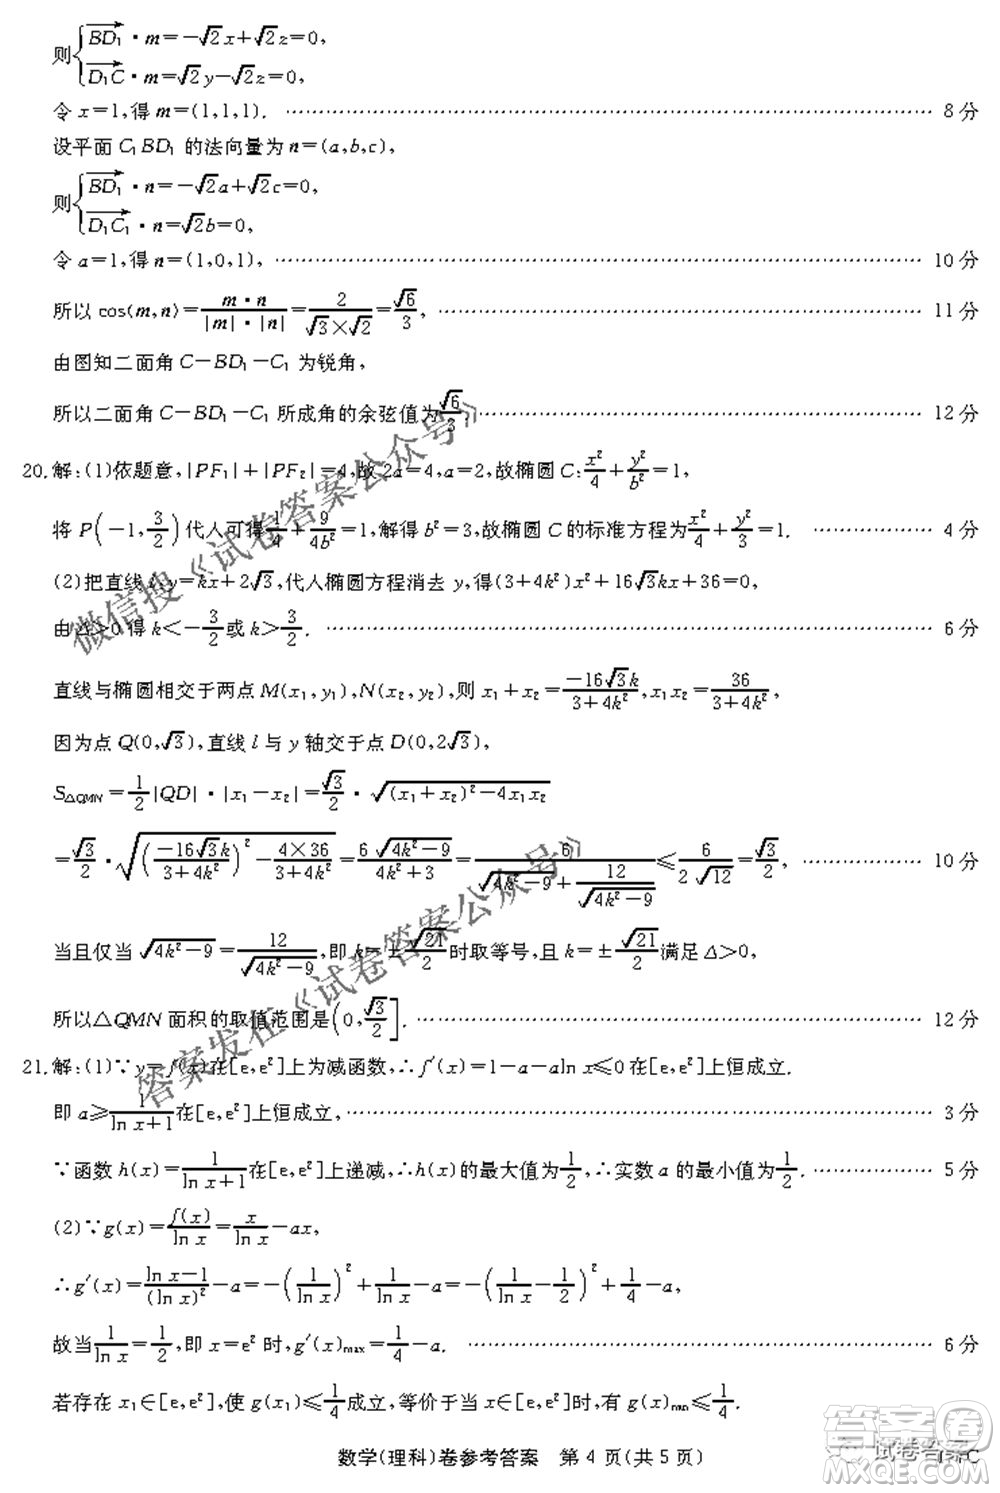 则{BD₁·m=-√2x+√2z=0,
D₁C·m=√2y-√2z=0,
令 x=1,得 m=(1,1,1). ………… 8 分
设平面 C₁BD₁ 的法向量为 n=(a,b,c),
则{BD₁·n=-√2a+√2c=0,
D₁C₁·n=√2b=0,
令 a=1,得 n=(1,0,1), ………… 10 分
所以 cos⟨m,n⟩=m·n/(|m|·|n|)=2/(√3×√2)=√6/3, ………… 11 分
由图知二面角 C-BD₁-C₁ 为锐角,
所以二面角 C-BD₁-C₁ 所成角的余弦值为√6/3. ………… 12 分
20.解:(1)依题意,|PF₁|+|PF₂|=4,故 2a=4,a=2,故椭圆 C:x²/4+y²/b²=1,
将 P(-1,3/2)代人可得1/4+9/(4b²)=1,解得 b²=3,故椭圆 C 的标准方程为x²/4+y²/3=1. ………… 4 分
(2)把直线 l:y=kx+2√3,代人椭圆方程消去 y,得(3+4k²)x²+16√3kx+36=0,
由 Δ>0 得 k<-3/2或 k>3/2. ………… 6 分
直线与椭圆相交于两点 M(x₁,y₁),N(x₂,y₂),则 x₁+x₂=-16√3k/(3+4k²),x₁x₂=36/(3+4k²),
因为点 Q(0,√3),直线 l 与 y 轴交于点 D(0,2√3),
S△QMN=1/2|QD|·|x₁-x₂|=√3/2·√((x₁+x₂)²-4x₁x₂)
=√3/2·√((-16√3k/(3+4k²))²-4×36/(3+4k²))=6√(4k²-9)/(4k²+3)=6/(√(4k²-9)+12/√(4k²-9))≤6/(2√12)=√3/2, ………… 10 分
当且仅当 √(4k²-9)=12/√(4k²-9),即 k=±√21/2时取等号,且 k=±√21/2满足 Δ>0,
所以△QMN 面积的取值范围是(0,√3/2]. ………… 12 分
21.解:(1)∵y=f(x)在[e,e²]上为减函数,∴f′(x)=1-a-aln x≤0在[e,e²]上恒成立.
即 a≥1/(ln x+1)在[e,e²]上恒成立, ………… 3 分
∵函数 h(x)=1/(ln x+1)在[e,e²]上递减,∴h(x)的最大值为1/2,∴实数 a 的最小值为1/2. ………… 5 分
(2)∵g(x)=f(x)/ln x=x/ln x-ax,
∴g′(x)=(ln x-1)/(ln x)²-a=-(1/ln x)²+1/ln x-a=-(1/ln x-1/2)²+1/4-a,
故当1/ln x=1/2,即 x=e² 时,g′(x)max=1/4-a. ………… 6 分
若存在 x₁∈[e,e²],使 g(x)≤1/4成立,等价于当 x∈[e,e²]时,有 g(x)min≤1/4.
数学(理科)卷参考答案 第 4 页(共 5 页)
微信搜《试卷答案公众号》
答案发在《试卷答案公众号》
答案卷
试卷答案
MXQE.COM